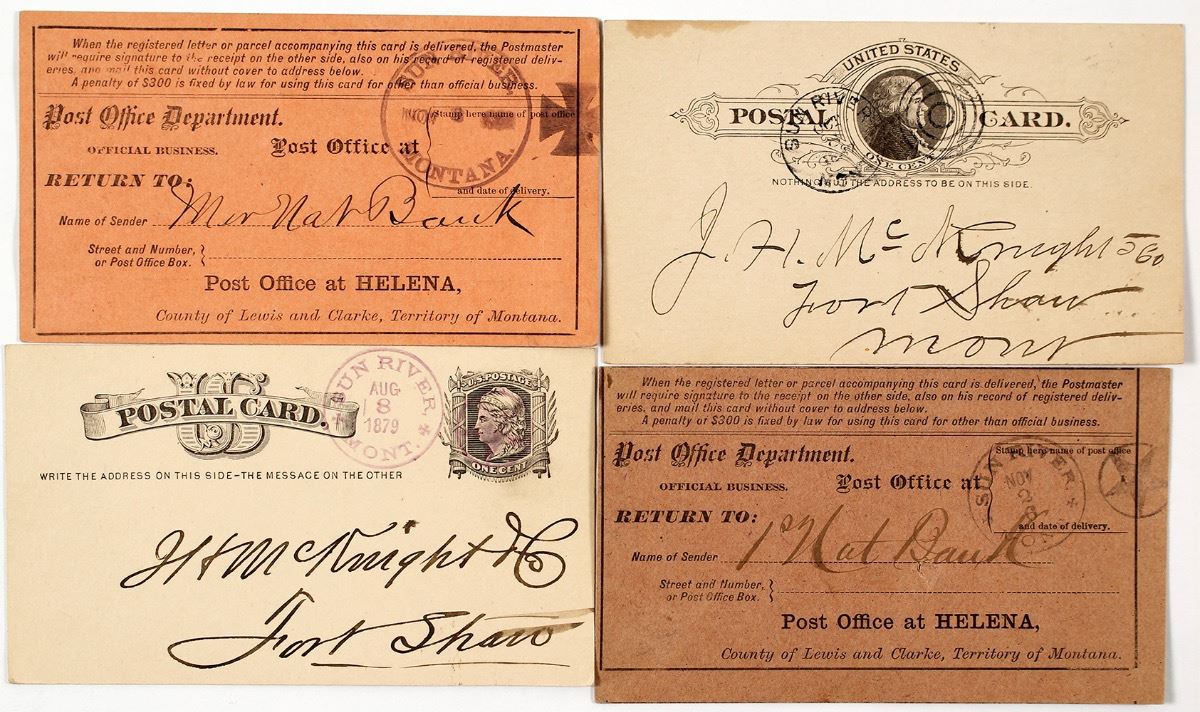 When the registered letter or parcel accompanying this card is delivered, the Postmaster
will require signature to the receipt on the other side, also on his record of registered deliv-
eries, and mail this card without cover to address below.
A penalty of $300 is fixed by law for using this card for other than official business.
Post Office Department.
OFFICIAL BUSINESS.
Post Office at
Stamp here name of post office
and date of delivery.
SUN RIVER
MONTANA.
RETURN TO:
Name of Sender Mer Nat Bank
Street and Number,
or Post Office Box.
Post Office at HELENA,
County of Lewis and Clarke, Territory of Montana.
UNITED STATES
POSTAL CARD.
ONE CENT
SUN RIVER
MON
NOTHING BUT THE ADDRESS TO BE ON THIS SIDE.
J. H. McKnight & Co
Fort Shaw
Mont
US
POSTAL CARD.
SUN RIVER,
AUG
8
1879
MONT.
U.S. POSTAGE
ONE CENT
WRITE THE ADDRESS ON THIS SIDE-THE MESSAGE ON THE OTHER
J H McKnight & Co
Fort Shaw
When the registered letter or parcel accompanying this card is delivered, the Postmaster
will require signature to the receipt on the other side, also on his record of registered deliv-
eries, and mail this card without cover to address below.
A penalty of $300 is fixed by law for using this card for other than official business.
Post Office Department.
OFFICIAL BUSINESS.
Post Office at
Stamp here name of post office
and date of delivery.
SUN RIVER
NOV
MON
RETURN TO:
Name of Sender 1st Nat Bank
Street and Number,
or Post Office Box.
Post Office at HELENA,
County of Lewis and Clarke, Territory of Montana.